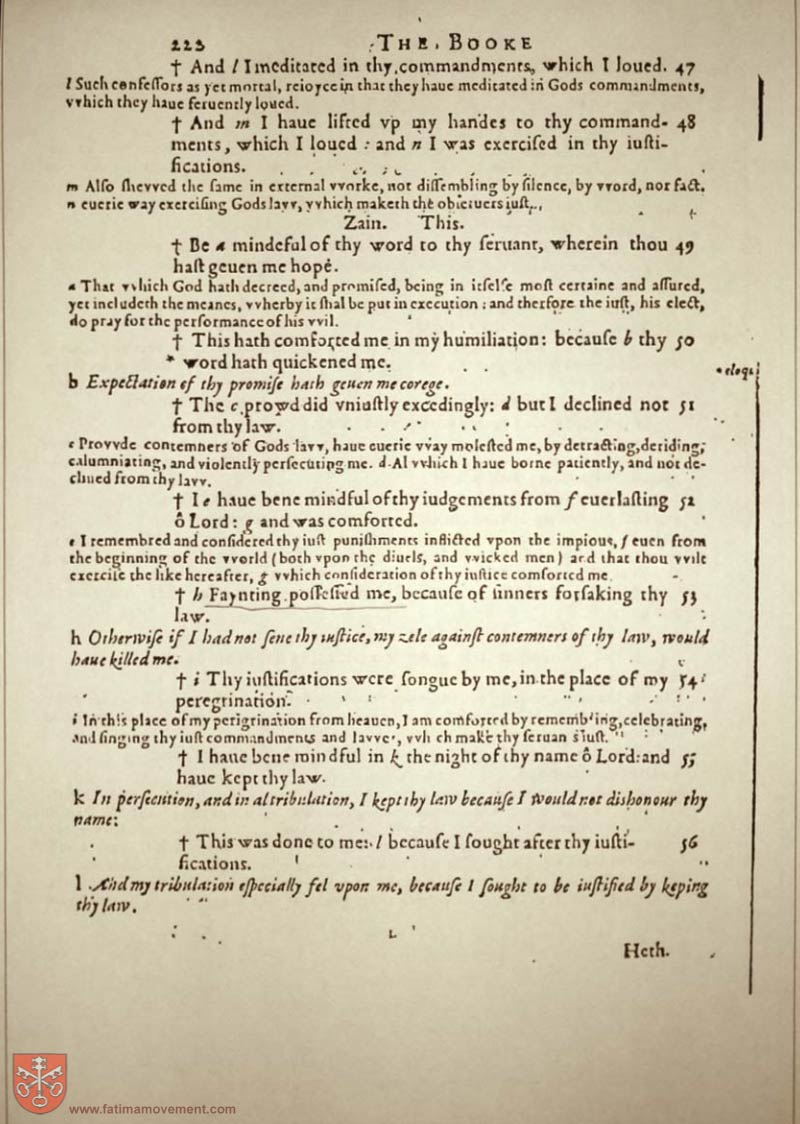 223 THE BOOKE
† And l I meditated in thy commandments, which I loued. 47
l Such confeſſors as yet mortal, reioyce in that they haue meditated in Gods commandments,
vvhich they haue feruently loued.
† And m I haue lifted vp my handes to thy command- 48
ments, which I loued : and n I was exerciſed in thy iuſti-
fications.
m Alſo ſhevved the ſame in external vvorke, not diſſembling by ſilence, by vvord, nor fact.
n euerie way exerciſing Gods lavv, vvhich maketh the obſeruers iuſt.
Zain. This.
† Be a mindeful of thy word to thy ſeruant, wherein thou 49
haſt geuen me hope.
a That vvhich God hath decreed, and promiſed, being in itſelfe moſt certaine and aſſured,
yet includeth the meanes, vvherby it ſhal be put in execution : and therfore the iuſt, his elect,
do pray for the performance of his vvil.
† This hath comforted me in my humiliation: becauſe b thy 50
* word hath quickened me. * eloqui
b Expectation of thy promiſe hath geuen me corege.
† The c prowd did vniuſtly excedingly: d but I declined not 51
from thy law.
c Provvde contemners of Gods lavv, haue euerie vvay moleſted me, by detracting, deriding,
calumniating, and violently perſecuting me. d Al vvhich I haue borne patiently, and not de-
clined from thy lavv.
† I e haue bene mindful of thy iudgements from f euerlaſting 52
ô Lord : g and was comforted.
e I remembred and conſidered thy iuſt puniſhments inflicted vpon the impious, f euen from
the beginning of the vvorld (both vpon the diuels, and vvicked men) and that thou vvilt
exerciſe the like hereafter, g vvhich conſideration of thy iuſtice comforted me.
† h Faynting poſſeſſed me, becauſe of ſinners forſaking thy 53
law.
h Otherwiſe if I had not ſene thy iuſtice, my zele againſt contemners of thy law, would
haue killed me.
† i Thy iuſtifications were ſongue by me, in the place of my 54
peregrination.
i In this place of my perigrination from heauen, I am comforted by remembring, celebrating,
and ſinging thy iuſt commandments and lavves, vvhich make thy ſeruants iuſt.
† I haue bene mindful in k the night of thy name ô Lord: and 55
haue kept thy law.
k In perſecution, and in al tribulation, I kept thy law becauſe I would not diſhonour thy
name:
† This was done to me: l becauſe I ſought after thy iuſti- 56
fications.
l And my tribulation eſpecially fel vpon me, becauſe I ſought to be iuſtified by keping
thy law.
Heth.
www.fatimamovement.com